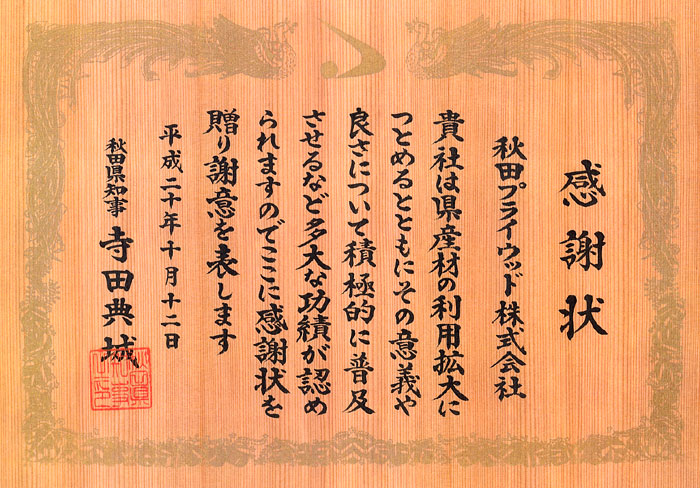 感謝状
秋田プライウッド株式会社
貴社は県産材の利用拡大に
つとめるとともにその意義や
良さについて積極的に普及
させるなど多大な功績が認め
られますのでここに感謝状を
贈り謝意を表します
平成二十年十月十二日
秋田県知事 寺田典城